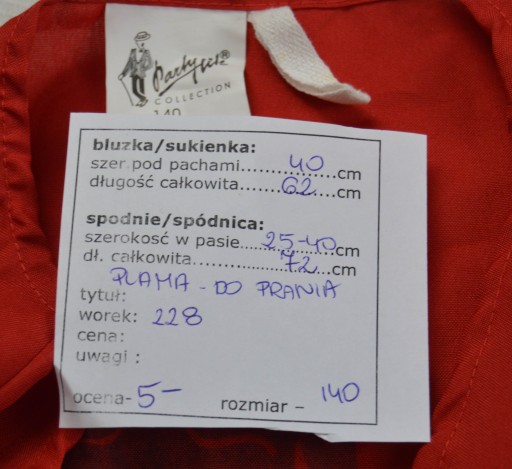 Party
COLLECTION
140
bluzka/sukienka:
szer.pod pachami...............40...cm
długość całkowita...............62...cm
spodnie/spódnica:
szerokosć w pasie...25-40cm
dł. całkowita...............72...cm
PLAMA - DO PRANIA
tytuł:
worek: 228
cena:
uwagi :
ocena- 5- rozmiar – 140